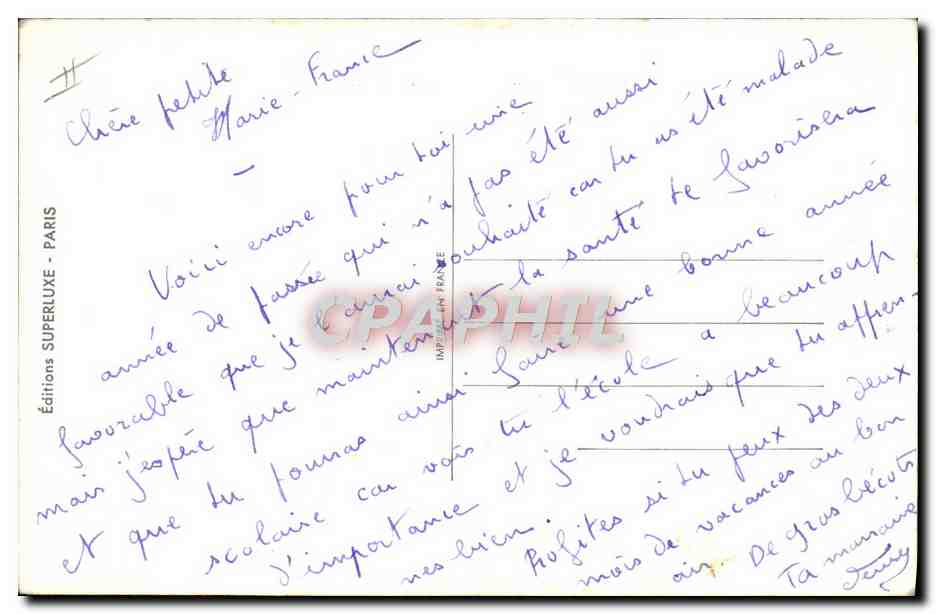 II
Chère petite
Marie-France
Voici encore pour toi une
année de passée qui n'a pas été aussi
favorable que je l'aurai souhaité car tu as été malade
mais j'espère que maintenant la santé te favorisera
et que tu pourras ainsi faire une bonne année
scolaire car vois tu l'école a beaucoup
d'importance et je voudrais que tu appren-
nes bien. Profites si tu peux des deux
mois de vacances au bon
air. De gros bécots
Ta marraine
Éditions SUPERLUXE - PARIS
IMPRIMÉ EN FRANCE
CPAPHIL